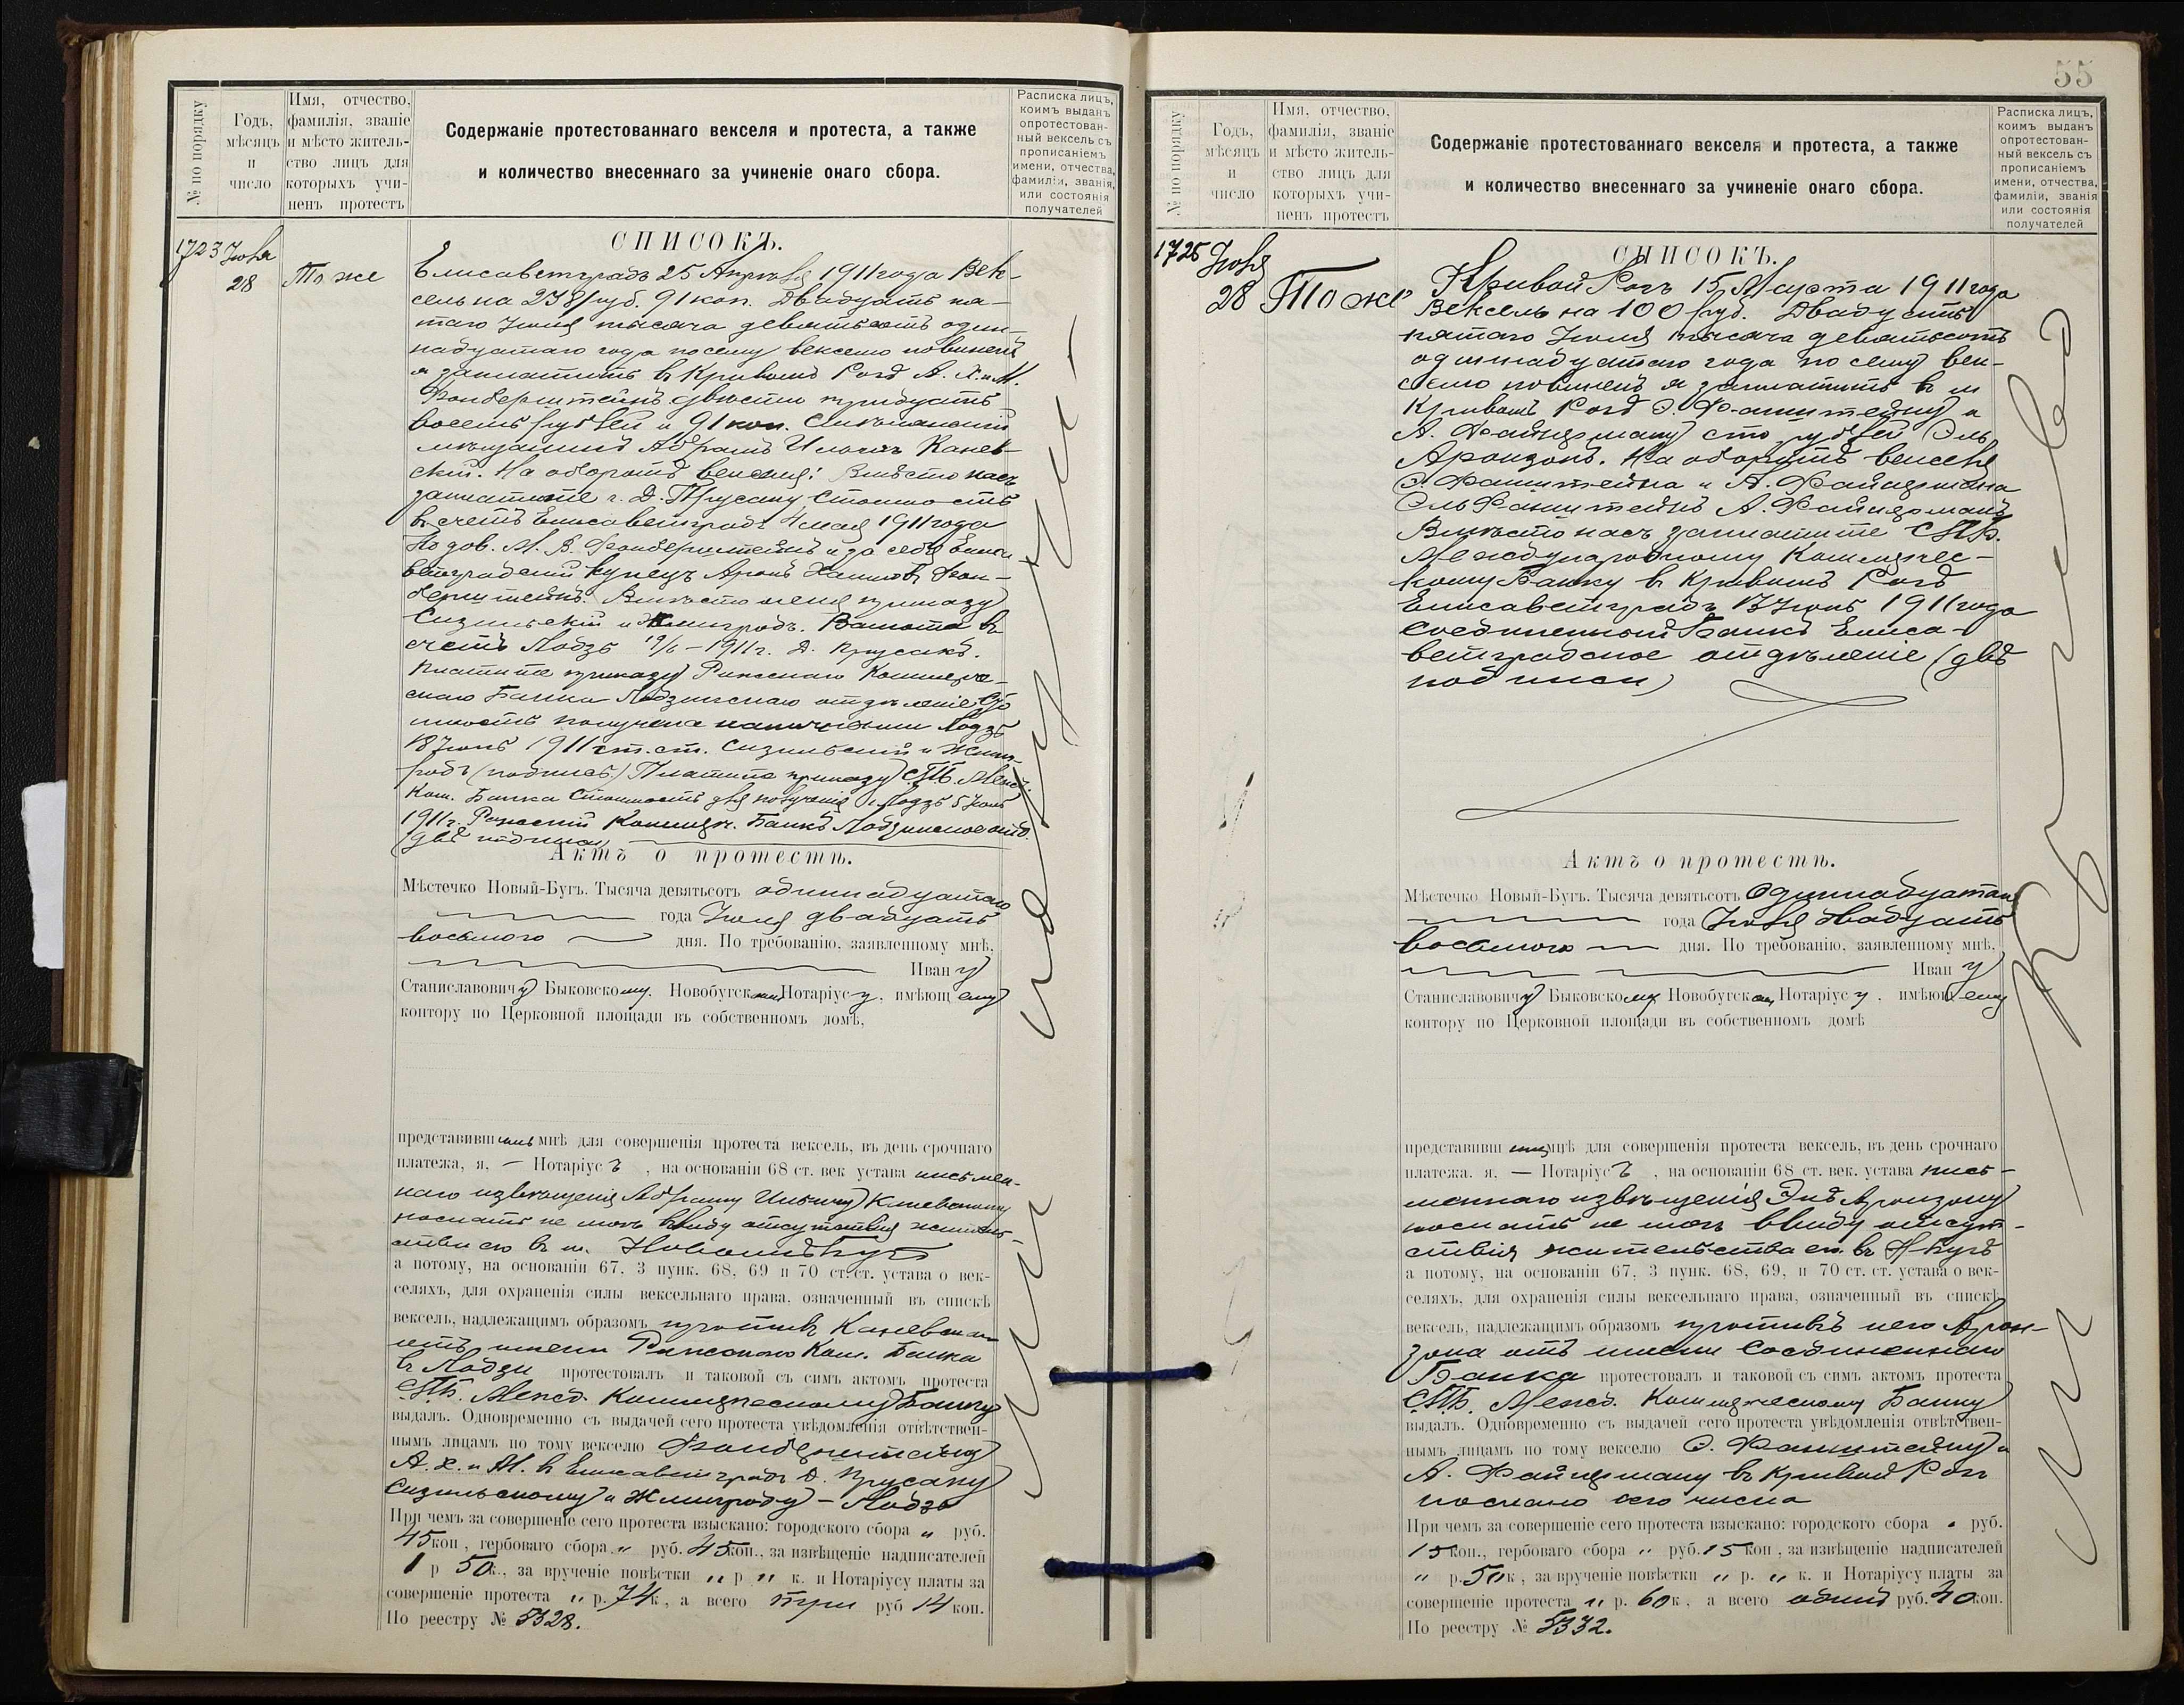 № по порядку
Годъ, мѣсяцъ и число
Имя, отчество, фамилія, званіе и мѣсто жительство лицъ для которыхъ учиненъ протестъ
Содержаніе протестованнаго векселя и протеста, а также
и количество внесеннаго за учиненіе онаго сбора.
Расписка лицъ, коимъ выданъ опротестованный вексель съ прописаніемъ имени, отчества, фамиліи, званія, или состоянія получателей
1723 Іюля
28
То же
СПИСОКЪ.
Елисаветградъ 25 Апрѣля 1911 года Век-
сель на 238 руб. 91 коп. Двадцать пя-
таго Іюля тысяча девятьсотъ один-
надцатаго года по сему векселю повиненъ
я заплатить въ Кривомъ Рогѣ А. Х. и М.
Фонберштейнъ двѣсти тридцать
восемь рублей и 91 коп.
мѣщанинъ Абрамъ Ильичъ Канев-
скій. На оборотѣ векселя: Вмѣсто насъ
заплатите г. Д. Прусаку стоимость
въ счетъ Елисаветградъ 4 мая 1911 года
По дов. М. В. Фонберштейнъ и за себя Елиса
ветградскій купецъ Аронъ Хаимовъ Фон-
берштейнъ. Вмѣсто меня приказу
Сизильскій и Жмигродъ. Валюта въ
счетъ Лодзь 19/6 - 1911 г. Д. Прусакъ.
Платите приказу Рижскаго Коммерче-
скаго Банка Лодзинскаго отдѣленіе Сто
имость получена наличными Лодзь
18 Іюнь 1911 ст. ст. Сизильскій и Жмиг-
родъ (подпись) Платите приказу СПБ. Межд.
Ком. Банка Стоимость для полученія Лодзь 5 Іюль
1911 г. Рижскій Коммерч. Банкъ Лодзинское отд.
(двѣ подписи)
Актъ о протестѣ.
Мѣстечко Новый-Бугъ. Тысяча девятьсотъ одиннадцатаго
года Іюля двадцать
восьмого дня. По требованію, заявленному мнѣ,
Ивану
Станиславовичу Быковскому, Новобугскому Нотаріусу, имѣющему
контору по Церковной площади въ собственномъ домѣ,
представившимъ мнѣ для совершенія протеста вексель, въ день срочнаго
платежа, я, — Нотаріусъ, на основаніи 68 ст. век устава письмен-
наго извѣщенія Абраму Ильичу Каневскому
послать не могъ ввиду отсутствія житель-
ства его въ м. Новомъ Бугѣ
а потому, на основаніи 67, 3 пунк. 68, 69 и 70 ст. ст. устава о век-
селяхъ, для охраненія силы вексельнаго права, означенный въ спискѣ
вексель, надлежащимъ образомъ противъ Каневскаго
отъ имени Рижскаго Ком. Банка
въ Лодзи протестовалъ и таковой съ симъ актомъ протеста
СПБ. Межд. Коммерческому Банку
выдалъ. Одновременно съ выдачей сего протеста увѣдомленія отвѣтствен-
нымъ лицамъ по тому векселю Фонберштейну
А. Х. и М. въ Елисаветградъ Д. Прусаку
Сизильскому и Жмигроду - Лодзь
При чемъ за совершеніе сего протеста взыскано: городского сбора „ руб.
45 коп, гербоваго сбора „ руб. 45 коп., за извѣщеніе надписателей
1 р 50 к., за врученіе повѣстки „ р „ к. и Нотаріусу платы за
совершеніе протеста „ р. 74 к, а всего три руб 14 коп.
По реестру № 5328.
55
№ по порядку
Годъ, мѣсяцъ и число
Имя, отчество, фамилія, званіе и мѣсто жительство лицъ для которыхъ учиненъ протестъ
Содержаніе протестованнаго векселя и протеста, а также
и количество внесеннаго за учиненіе онаго сбора.
Расписка лицъ, коимъ выданъ опротестованный вексель съ прописаніемъ имени, отчества, фамиліи, званія или состоянія получателей
1725 Іюля
28 То же
СПИСОКЪ.
Кривой Рогъ 15 Марта 1911 года
Вексель на 100 руб. Двадцать
пятаго Іюля тысяча девятьсотъ
одиннадцатаго года по сему век-
селю повиненъ я заплатить въ м
Кривомъ Рогѣ Э. Фанштейну и
А. Файнерману сто рублей Эль
Аронзонъ. На оборотѣ векселя
Э. Фанштейна и А. Файнермана
Эль Фанштейнъ А. Файнерманъ
Вмѣсто насъ заплатите СПБ.
Международному Коммерчес-
кому Банку въ Кривомъ Рогѣ
Елисаветградъ 13 Іюнь 1911 года
Соединенный Банкъ Елиса-
ветградское отдѣленіе (двѣ
подписи)
Актъ о протестѣ.
Мѣстечко Новый-Бугъ. Тысяча девятьсотъ Одиннадцатаго
года Іюля двадцать
восьмого дня. По требованію, заявленному мнѣ,
Ивану
Станиславовичу Быковскому Новобугскому Нотаріусу, имѣющему
контору по Церковной площади въ собственномъ домѣ
представившимъ мнѣ для совершенія протеста вексель, въ день срочнаго
платежа. я, — Нотаріусъ, на основаніи 68 ст. век. устава пись-
меннаго извѣщенія Элѣ Аронзону
послать не могъ ввиду отсут-
ствія жительства его въ Н-Бугѣ
а потому, на основаніи 67, 3 пунк. 68, 69, и 70 ст. ст. устава о век-
селяхъ, для охраненія силы вексельнаго права, означенный въ спискѣ
вексель, надлежащимъ образомъ противъ него Арон-
зона отъ имени Соединеннаго
Банка протестовалъ и таковой съ симъ актомъ протеста
СПБ. Межд. Коммерческому Банку
выдалъ. Одновременно съ выдачей сего протеста увѣдомленія отвѣтствен-
нымъ лицамъ по тому векселю Э. Фанштейну и
А. Файнерману въ Кривой Рогъ
послано сего числа
При чемъ за совершеніе сего протеста взыскано: городского сбора „ руб.
15 коп., гербоваго сбора „ руб. 15 коп, за извѣщеніе надписателей
„ р. 50 к, за врученіе повѣстки „ р. „ к. и Нотаріусу платы за
совершеніе протеста „ р. 60 к, а всего одинъ руб. 40 коп.
По реестру № 5332.